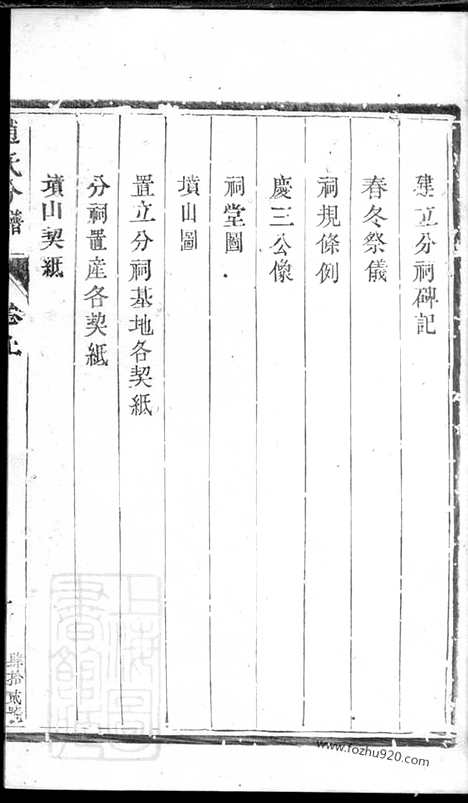 建立分祠碑記
春冬祭儀
祠規條例
慶三公像
祠堂圖
墳山圖
置立分祠基地各契紙
分祠置産各契紙
墳山契紙
趙氏分譜
卷上
肆拾貳號
上海圖書館藏
www.fozhu920.com